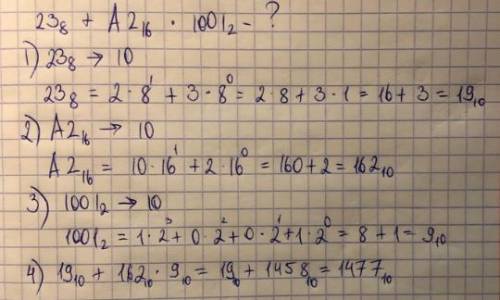 23₈ + A2₁₆ · 1001₂ - ?
1) 23₈ → 10
23₈ = 2 · 8¹ + 3 · 8⁰ = 2 · 8 + 3 · 1 = 16 + 3 = 19₁₀
2) A2₁₆ → 10
A2₁₆ = 10 · 16¹ + 2 · 16⁰ = 160 + 2 = 162₁₀
3) 1001₂ → 10
1001₂ = 1 · 2³ + 0 · 2² + 0 · 2¹ + 1 · 2⁰ = 8 + 1 = 9₁₀
4) 19₁₀ + 162₁₀ · 9₁₀ = 19₁₀ + 1458₁₀ = 1477₁₀